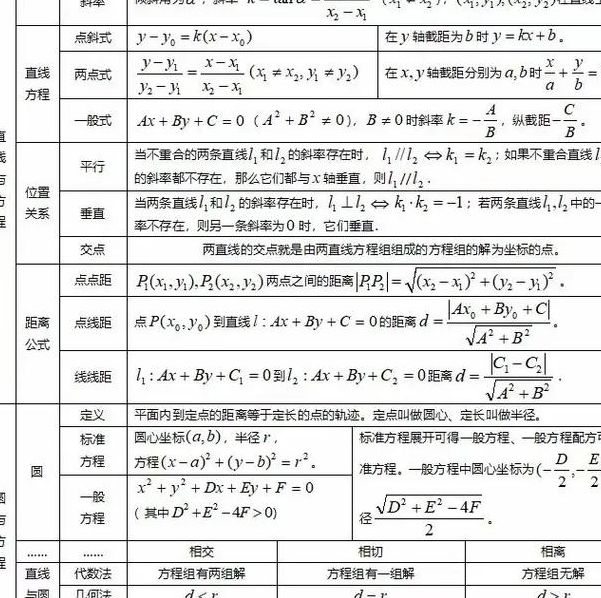 斜率
x₂ − x₁
点斜式 y − y₀ = k(x − x₀) 在 y 轴截距为 b 时 y = kx + b。
直线
方程
两点式 (y − y₁)/(y₂ − y₁) = (x − x₁)/(x₂ − x₁) (x₁ ≠ x₂, y₁ ≠ y₂) 在 x, y 轴截距分别为 a, b 时 x/a + y/b =
一般式 Ax + By + C = 0 (A² + B² ≠ 0), B ≠ 0 时斜率 k = −A/B, 纵截距 −C/B。
位置
关系
平行 当不重合的两条直线 l₁ 和 l₂ 的斜率存在时, l₁ // l₂ ⇔ k₁ = k₂; 如果不重合直线 l
的斜率都不存在, 那么它们都与 x 轴垂直, 则 l₁ // l₂ .
垂直 当两条直线 l₁ 和 l₂ 的斜率存在时, l₁ ⊥ l₂ ⇔ k₁ · k₂ = −1; 若两条直线 l₁, l₂ 中的一
率不存在, 则另一条斜率为 0 时, 它们垂直.
交点 两直线的交点就是由两直线方程组组成的方程组的解为坐标的点。
距离
公式
点点距 P₁(x₁, y₁), P₂(x₂, y₂) 两点之间的距离 |P₁P₂| = √((x₂ − x₁)² + (y₂ − y₁)²) 。
点线距 点 P(x₀, y₀) 到直线 l : Ax + By + C = 0 的距离 d = |Ax₀ + By₀ + C| / √(A² + B²) 。
线线距 l₁ : Ax + By + C₁ = 0 到 l₂ : Ax + By + C₂ = 0 距离 d = |C₁ − C₂| / √(A² + B²) .
圆
定义 平面内到定点的距离等于定长的点的轨迹。定点叫做圆心、定长叫做半径。
标准
方程
圆心坐标 (a, b), 半径 r,
方程 (x − a)² + (y − b)² = r² 。
标准方程展开可得一般方程、一般方程配方可
准方程。一般方程中圆心坐标为 (−D/2, −E/2
径 √(D² + E² − 4F) / 2 。
一般
方程
x² + y² + Dx + Ey + F = 0
( 其中 D² + E² − 4F > 0)
…… …… 相交 相切 相离
直线
与圆
代数法 方程组有两组解 方程组有一组解 方程组无解
几何法 d < r d = r d > r